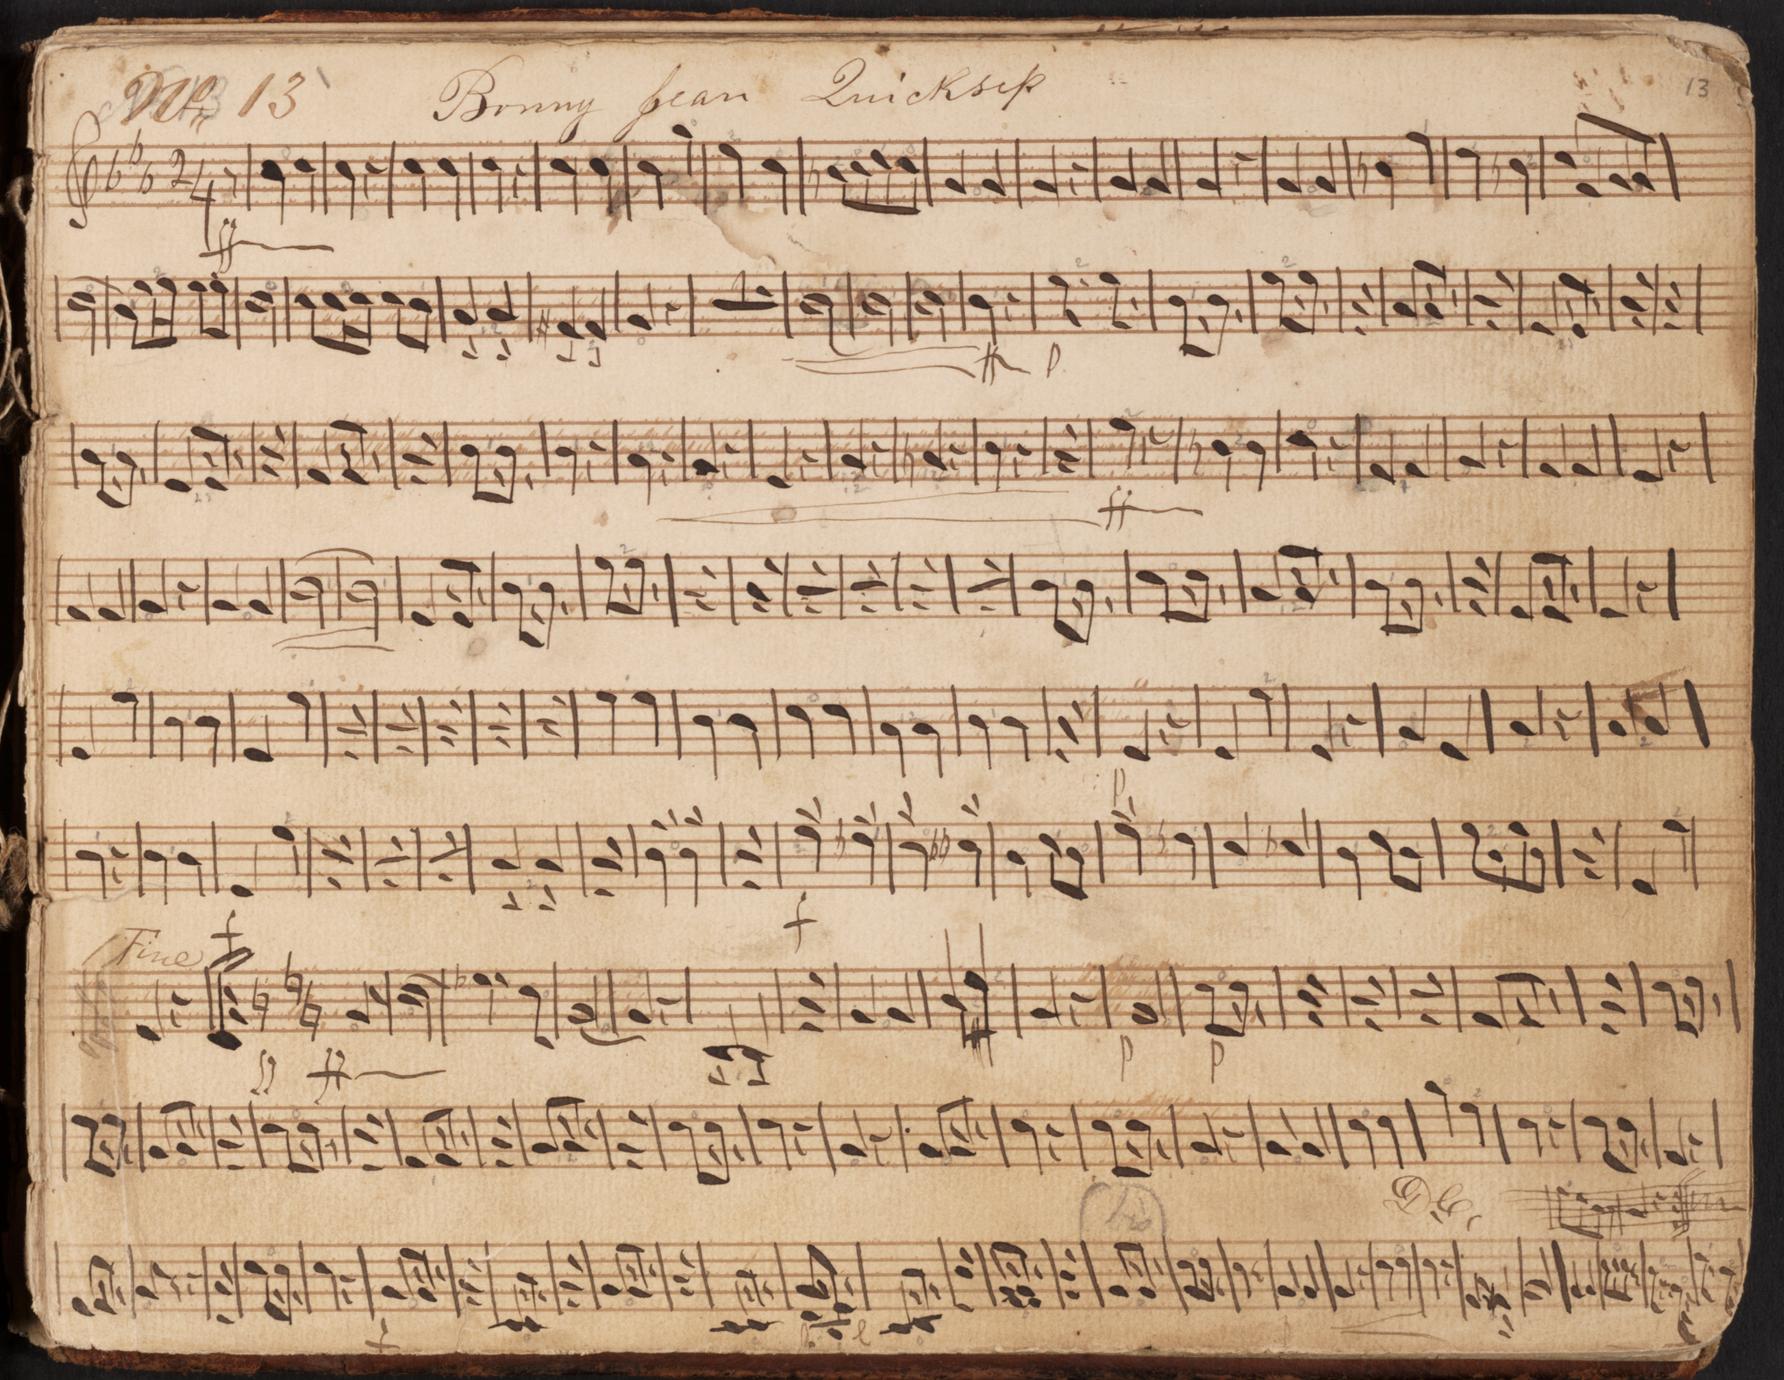 No 13 Bonny Jean Quicksep 13
2/4
ff
ff p
ff
p
f
Fine f
ff p p
D.C.
f